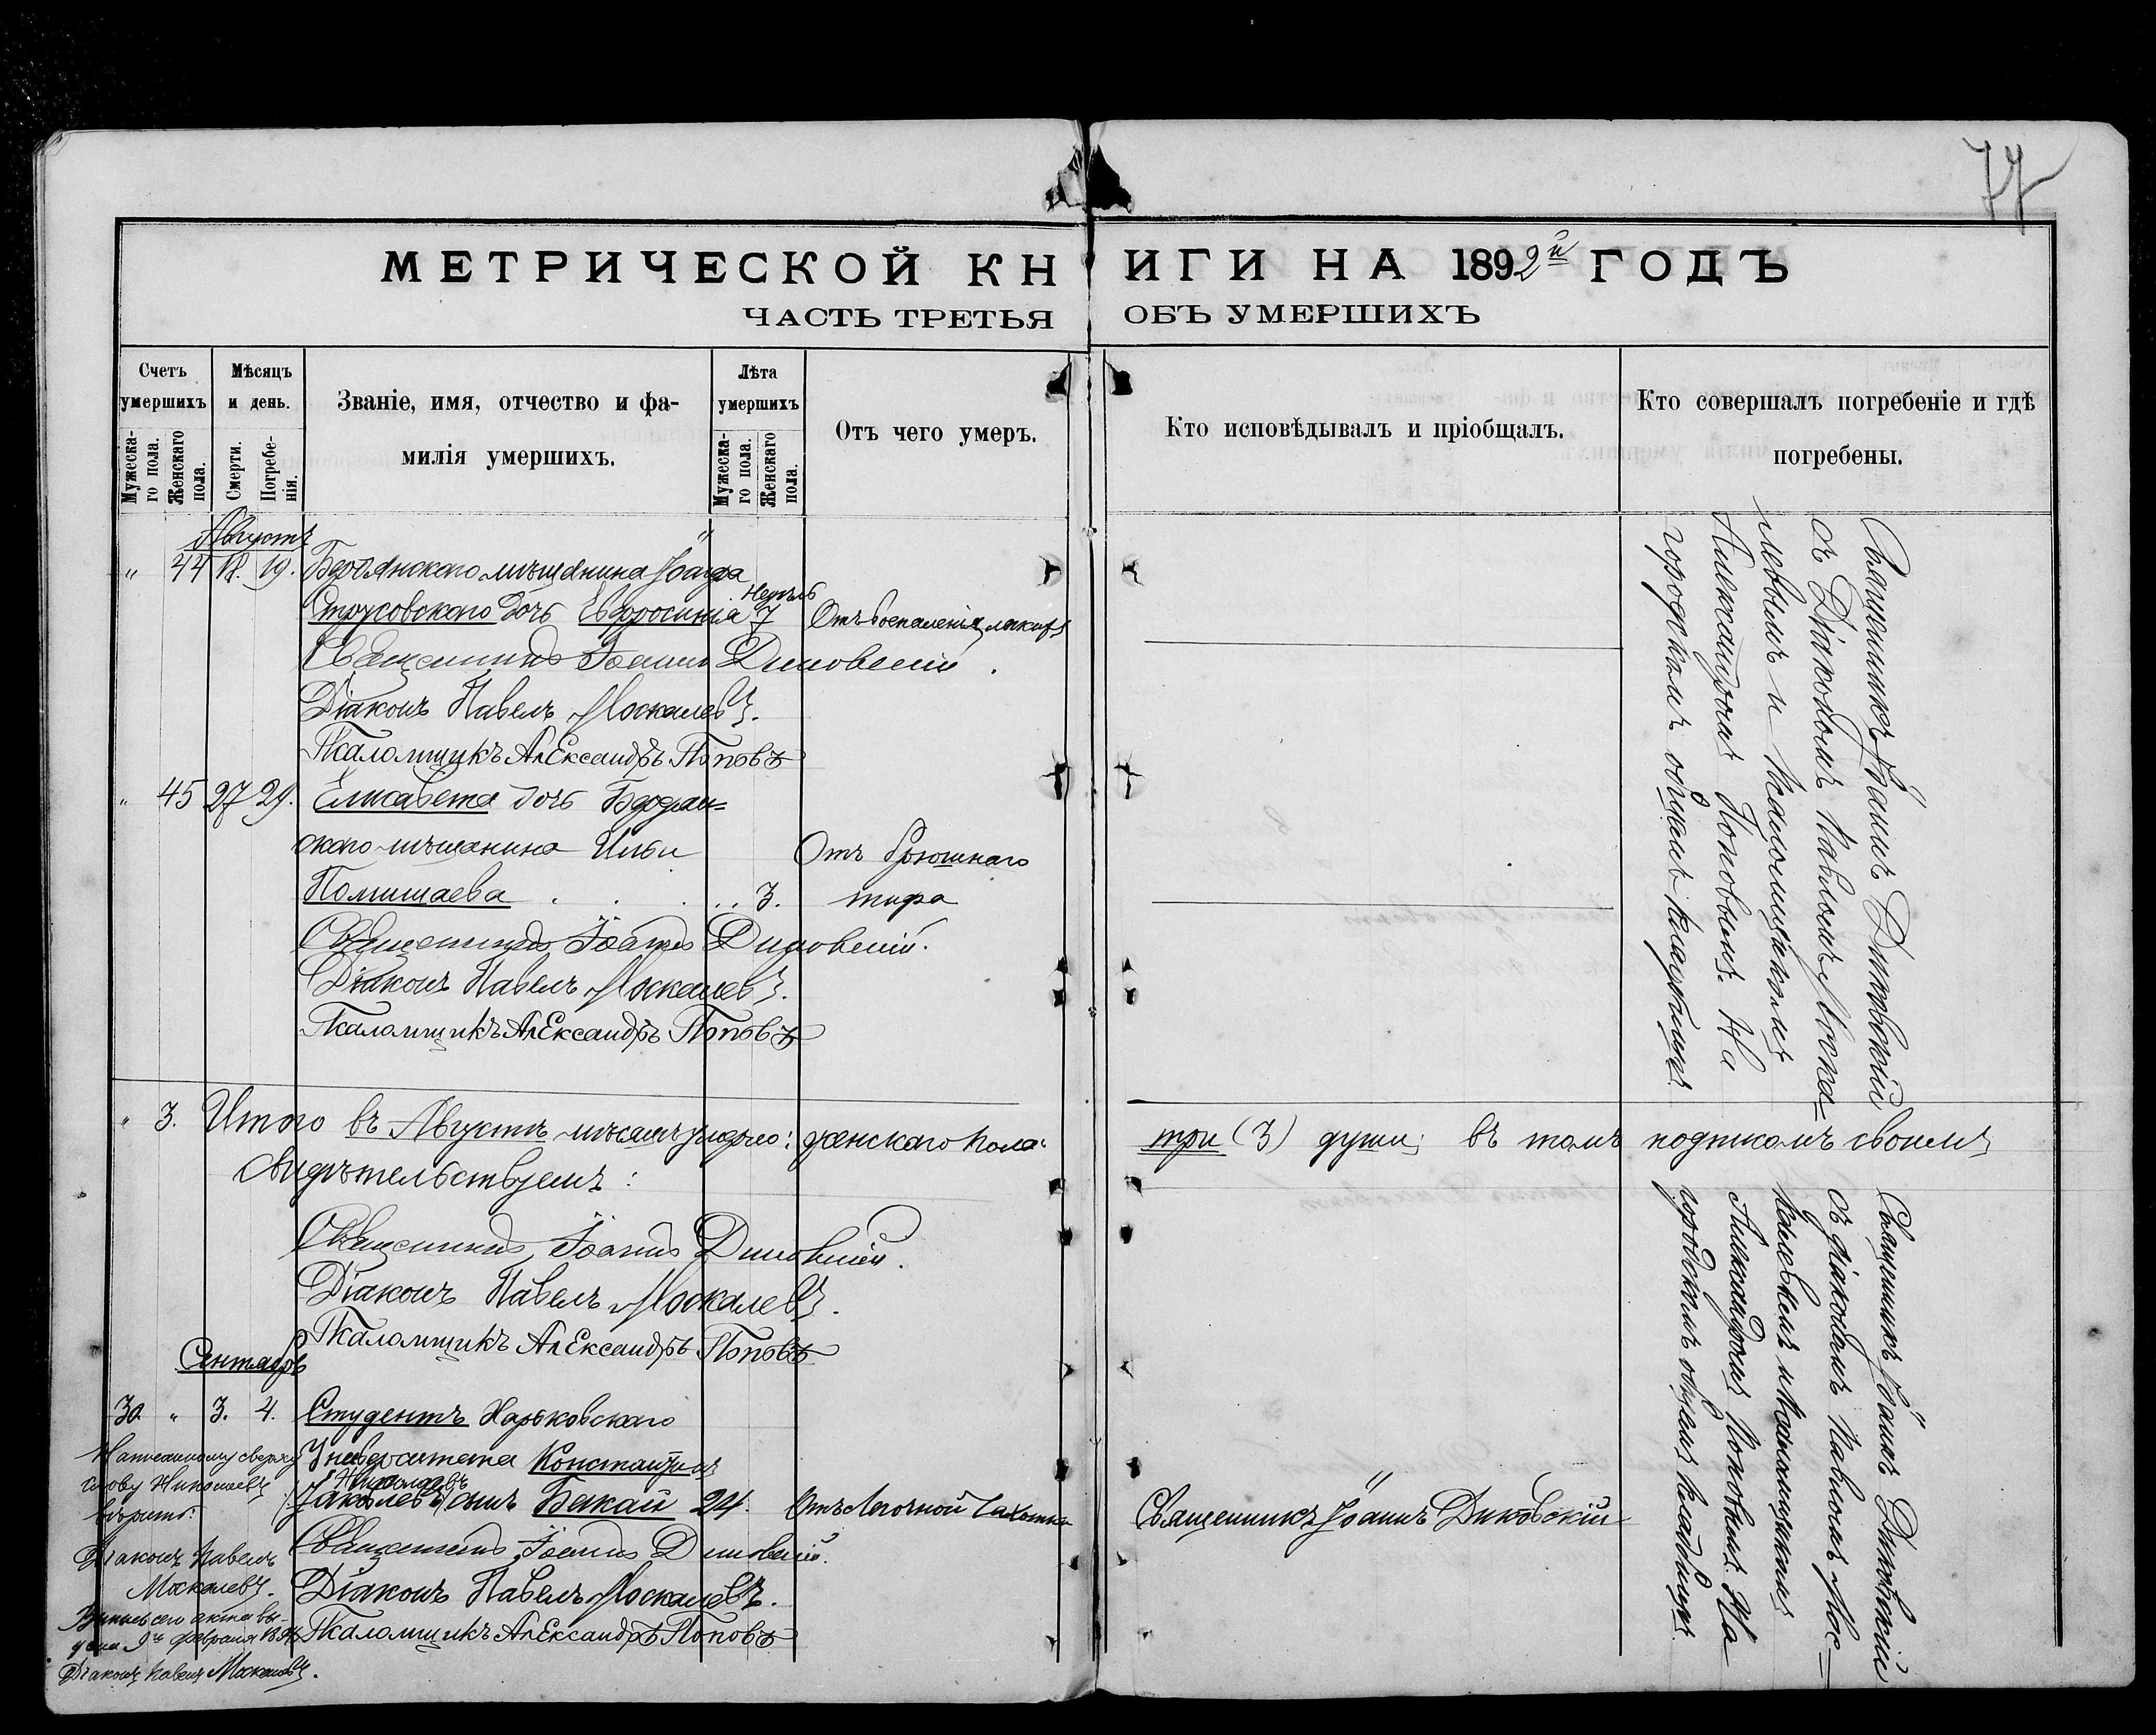 77
МЕТРИЧЕСКОЙ КНИГИ НА 1892й ГОДЪ
ЧАСТЬ ТРЕТЬЯ ОБЪ УМЕРШИХЪ
Счетъ умершихъ
Мужеска-го пола.
Женскаго пола.
Мѣсяцъ и день.
Смерти.
Погребе-нія.
Званіе, имя, отчество и фа-
милія умершихъ.
Лѣта умершихъ
Мужеска-го пола.
Женскаго пола.
Отъ чего умеръ.
Кто исповѣдывалъ и пріобщалъ.
Кто совершалъ погребеніе и гдѣ
погребены.
Августъ
" 44 18. 19. Бердянскаго мѣщанина Іоанна
дочь Евфросинія 7 Отъ воспаленія
Священникъ Іоаннъ Диковскій.
Діаконъ Павелъ Москалевъ.
Псаломщикъ Александръ Поповъ
" 45 27 29. Елисавета дочь Бердян=
скаго мѣщанина Ильи Отъ брюшнаго
3. тифа
Священникъ Іоаннъ Диковскій.
Діаконъ Павелъ Москалевъ.
Псаломщикъ Александръ Поповъ
Священникъ Іоаннъ Диковскій
съ Діакономъ Павломъ Моска=
левымъ и Псаломщикомъ
Александромъ Поповымъ. На
городскомъ общемъ кладбищѣ.
" 3. Итого въ Августѣ мѣсяцѣ умерло: женскаго пола: три (3) души; въ томъ подписомъ своимъ
свидѣтельствуемъ:
Священникъ Іоаннъ Диковскій.
Діаконъ Павелъ Москалевъ.
Псаломщикъ Александръ Поповъ
Сентябрь
30 " 3. 4. Студентъ Харьковскаго
Университета Константинъ
Николаевъ
Яковлевъ сынъ Бакай 24. Отъ легочной чахотки
Священникъ Іоаннъ Диковскій
Священникъ Іоаннъ Диковскій.
Діаконъ Павелъ Москалевъ.
Псаломщикъ Александръ Поповъ
Написанному сверху
слову Николаевъ
вѣрить:
Діаконъ Павелъ
Москалевъ.
Діаконъ Павелъ Москалевъ.
Священникъ Іоаннъ Диковскій
съ діакономъ Павломъ Мос=
калевымъ и Псаломщикомъ
Александромъ Поповымъ. На
городскомъ общемъ кладбищѣ.